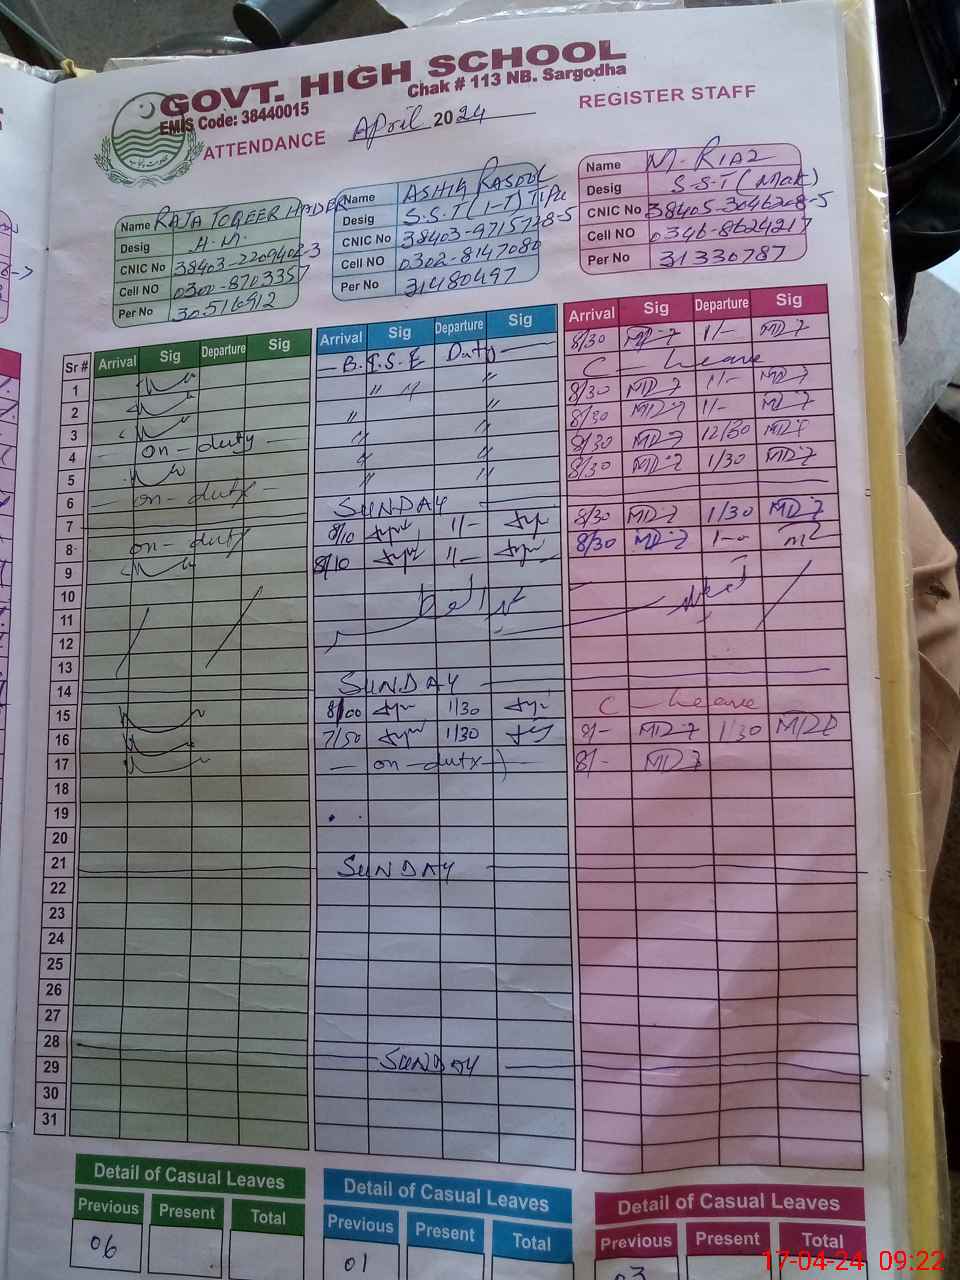 GOVT. HIGH SCHOOL
EMIS Code: 38440015 Chak # 113 NB. Sargodha
ATTENDANCE April 2024 REGISTER STAFF
Name RAJA TOQEER HAIDER
Desig H.M.
CNIC No 38403-2209402-3
Cell NO 0300-8703357
Per No 30516912
Name ASHIQ RASOOL
Desig S.S.T (I-T)
CNIC No 38403-9715728-5
Cell NO 0302-8147080
Per No 31480497
Name M. RIAZ
Desig S.S.T (Math)
CNIC No 38405-3046208-5
Cell NO 0346-8624217
Per No 31330787
Sr # Arrival Sig Departure Sig Arrival Sig Departure Sig Arrival Sig Departure Sig
1 B.I.S.E Duty 8/30 1/-
2 " " " C-Leave
3 " " 8/30 1/-
4 on-duty " " 8/30 1/-
5 " " 8/30 12/30
6 on-duty " " 8/30 1/30
7 SUNDAY
8 on-duty 8/10 1/- 8/30 1/30
9 8/10 1/- 8/30
10
11
12
13
14 SUNDAY
15 8/00 1/30 C-Leave
16 7/50 1/30 8/- 1/30
17 on-duty 8/-
18
19
20
21 SUNDAY
22
23
24
25
26
27
28 SUNDAY
29
30
31
Detail of Casual Leaves Detail of Casual Leaves Detail of Casual Leaves
Previous Present Total Previous Present Total Previous Present Total
06 01 03
17-04-24 09:22